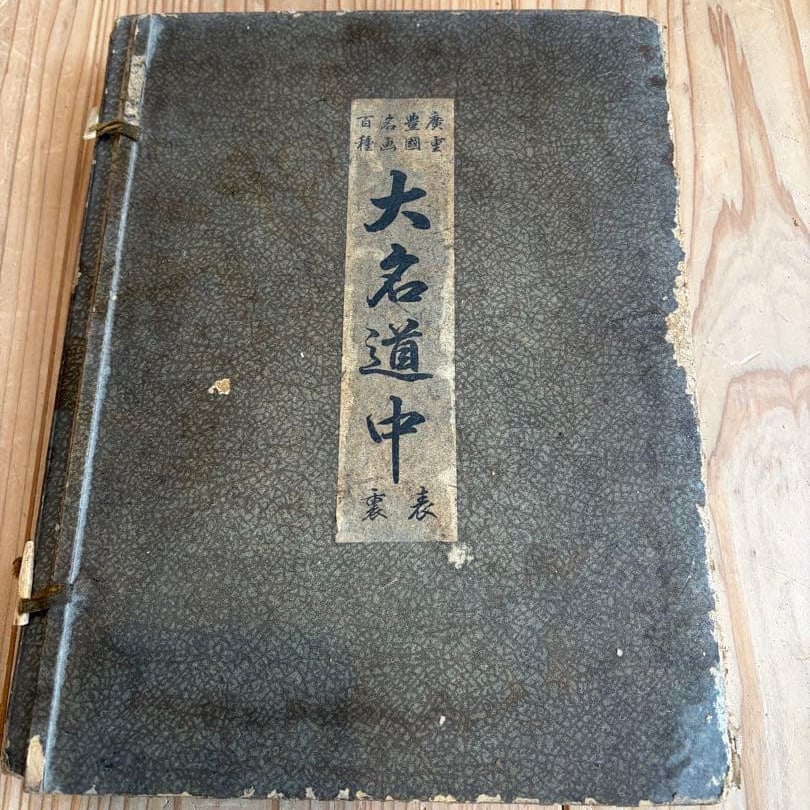 廣重
豊國
名画
百種
大名道中
表
裏